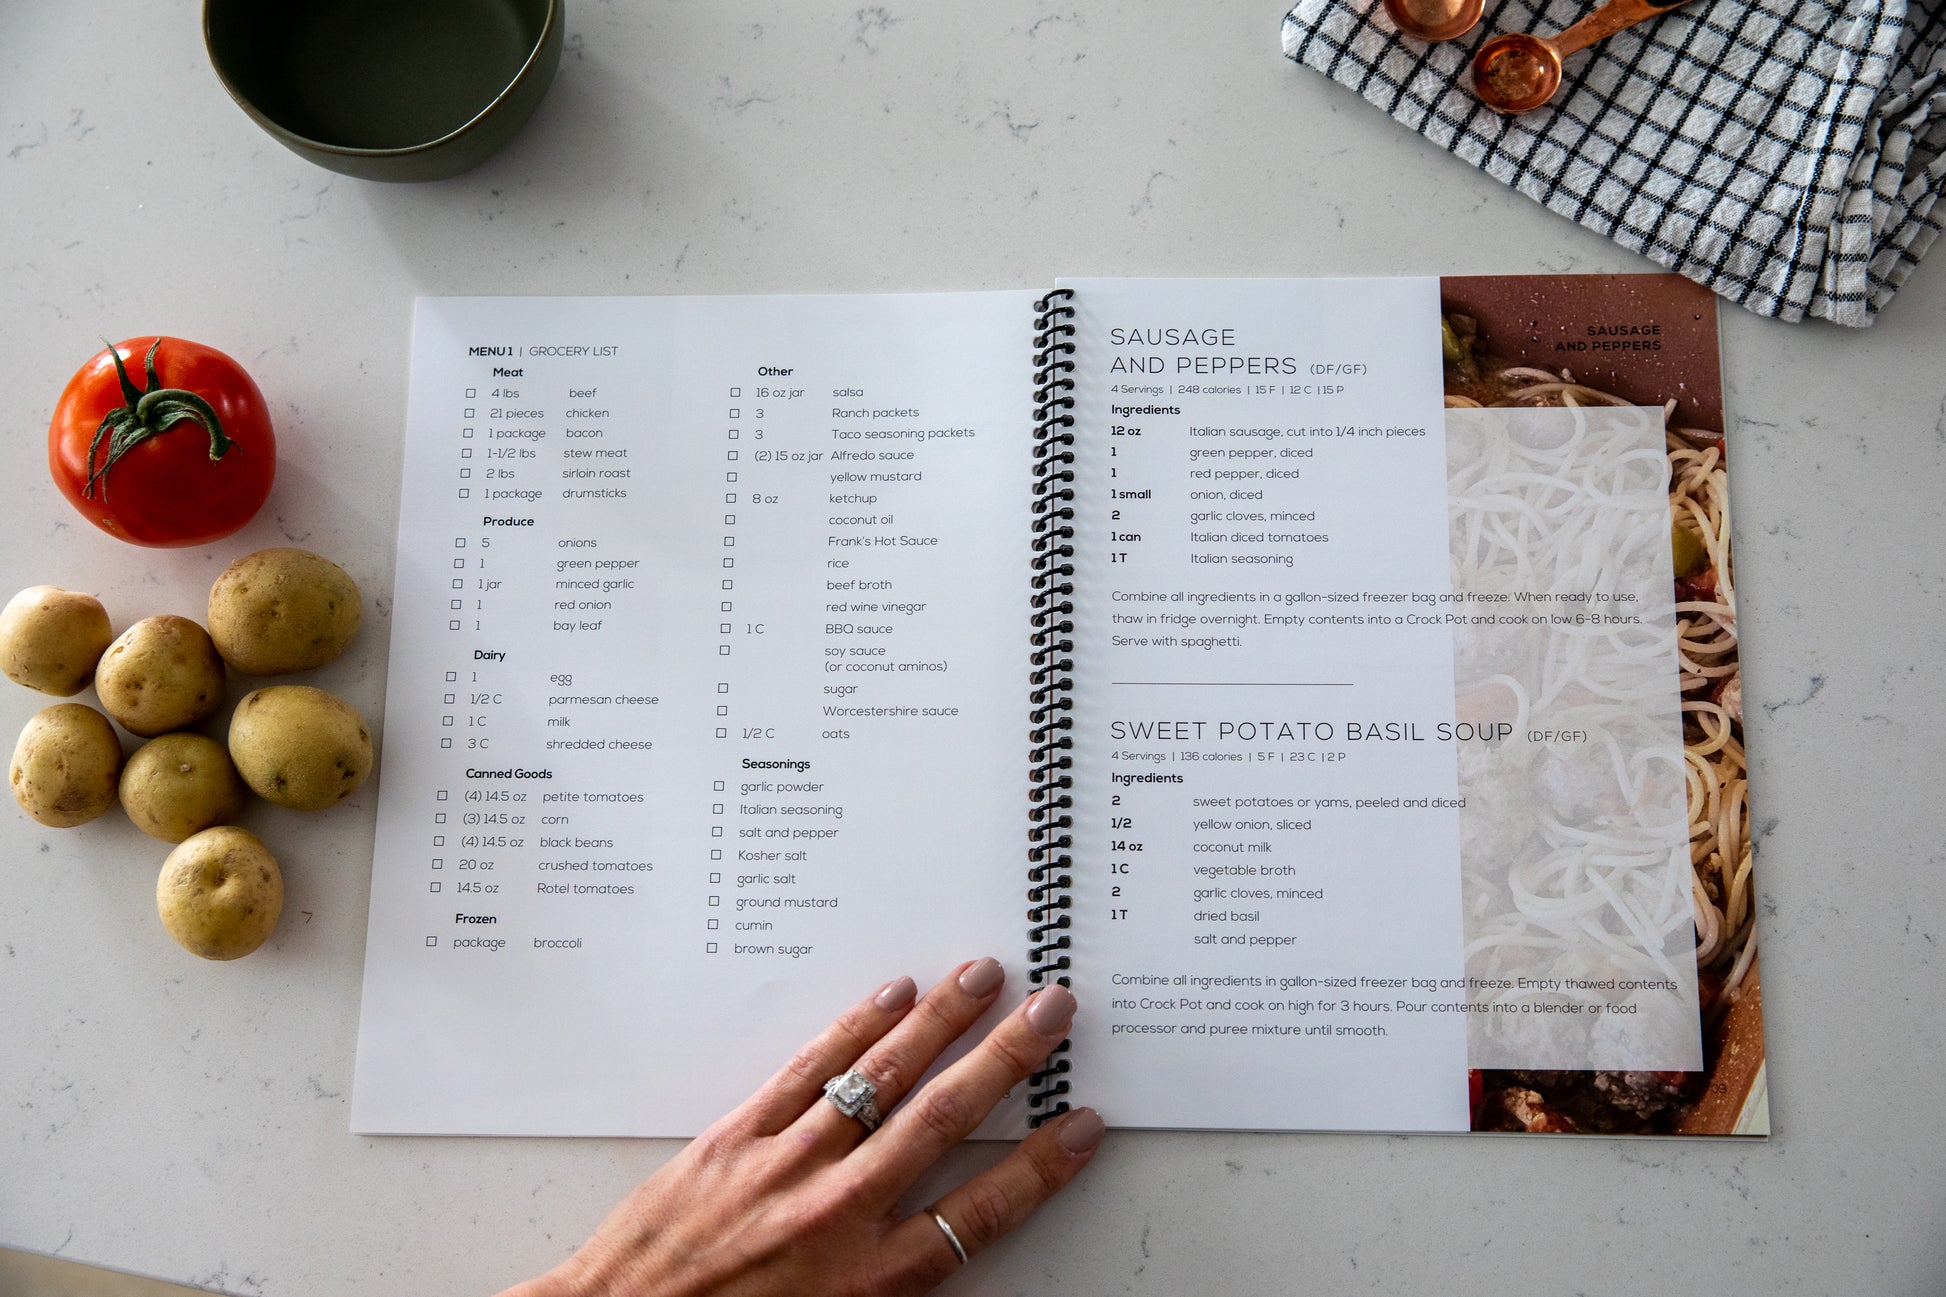 MENU 1 | GROCERY LIST
Meat
4 lbs beef
21 pieces chicken
1 package bacon
1-1/2 lbs stew meat
2 lbs sirloin roast
1 package drumsticks
Produce
5 onions
1 green pepper
1 jar minced garlic
1 red onion
1 bay leaf
Dairy
1 egg
1/2 C parmesan cheese
1 C milk
3 C shredded cheese
Canned Goods
(4) 14.5 oz petite tomatoes
(3) 14.5 oz corn
(4) 14.5 oz black beans
20 oz crushed tomatoes
14.5 oz Rotel tomatoes
Frozen
package broccoli
Other
16 oz jar salsa
3 Ranch packets
3 Taco seasoning packets
(2) 15 oz jar Alfredo sauce
yellow mustard
8 oz ketchup
coconut oil
Frank's Hot Sauce
rice
beef broth
red wine vinegar
1 C BBQ sauce
soy sauce
(or coconut aminos)
sugar
Worcestershire sauce
1/2 C oats
Seasonings
garlic powder
Italian seasoning
salt and pepper
Kosher salt
garlic salt
ground mustard
cumin
brown sugar
SAUSAGE
AND PEPPERS (DF/GF)
4 Servings | 248 calories | 15 F | 12 C | 15 P
Ingredients
12 oz Italian sausage, cut into 1/4 inch pieces
1 green pepper, diced
1 red pepper, diced
1 small onion, diced
2 garlic cloves, minced
1 can Italian diced tomatoes
1 T Italian seasoning
Combine all ingredients in a gallon-sized freezer bag and freeze. When ready to use,
thaw in fridge overnight. Empty contents into a Crock Pot and cook on low 6-8 hours.
Serve with spaghetti.
SWEET POTATO BASIL SOUP (DF/GF)
4 Servings | 136 calories | 5 F | 23 C | 2 P
Ingredients
2 sweet potatoes or yams, peeled and diced
1/2 yellow onion, sliced
14 oz coconut milk
1 C vegetable broth
2 garlic cloves, minced
1 T dried basil
salt and pepper
Combine all ingredients in gallon-sized freezer bag and freeze. Empty thawed contents
into Crock Pot and cook on high for 3 hours. Pour contents into a blender or food
processor and puree mixture until smooth.
SAUSAGE
AND PEPPERS
09